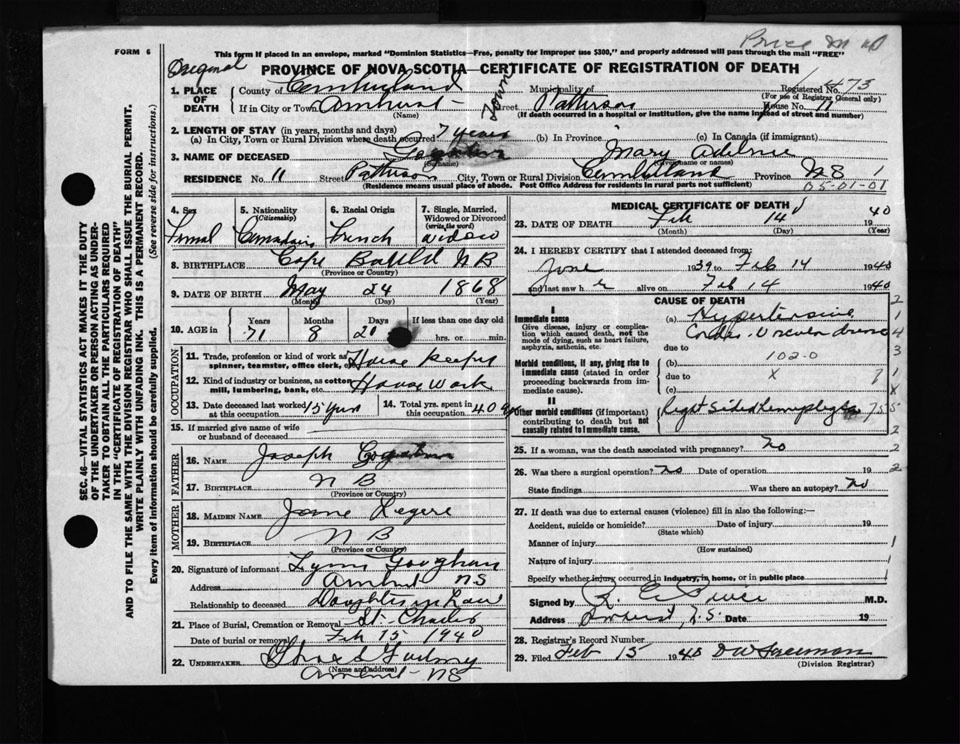 Price M D
FORM 6
This form if placed in an envelope, marked "Dominion Statistics—Free, penalty for improper use $300," and properly addressed will pass through the mail "FREE"
Original
PROVINCE OF NOVA SCOTIA—CERTIFICATE OF REGISTRATION OF DEATH
Registered No. 473
(For use of Registrar General only)
1. PLACE OF DEATH
County of Cumberland Municipality of
If in City or Town Amherst Town Street Patterson House No. 11
(Name) (If death occurred in a hospital or institution, give the name instead of street and number)
2. LENGTH OF STAY (in years, months and days)
(a) In City, Town or Rural Division where death occurred 7 years (b) In Province (c) In Canada (if immigrant)
3. NAME OF DECEASED Mary
(Surname) (Given name or names)
RESIDENCE No. 11 Street Patterson City, Town or Rural Division Cumberland Province N S
(Residence means usual place of abode. Post Office Address for residents in rural parts not sufficient)
05-01-01
4. Sex
5. Nationality (Citizenship)
6. Racial Origin
French
7. Single, Married, Widowed or Divorced (write the word)
widow
8. BIRTHPLACE Cape Bauld N B
(Province or Country)
9. DATE OF BIRTH May 24 1868
(Month) (Day) (Year)
10. AGE in Years Months Days If less than one day old
71 8 20 hrs. or min.
OCCUPATION
11. Trade, profession or kind of work as spinner, teamster, office clerk, etc. House keeper
12. Kind of industry or business, as cotton mill, lumbering, bank, etc. House Work
13. Date deceased last worked at this occupation 15 yrs
14. Total yrs. spent in this occupation 40 yrs
15. If married give name of wife or husband of deceased
FATHER
16. Name Joseph
17. Birthplace N B
(Province or Country)
MOTHER
18. Maiden Name Jane Legere
19. Birthplace N B
(Province or Country)
20. Signature of informant
Address Amherst NS
Relationship to deceased Daughter in Law
21. Place of Burial, Cremation or Removal St. Charles
Date of burial or removal Feb 15 1940
22. Undertaker
(Name and address)
Amherst NS
MEDICAL CERTIFICATE OF DEATH
23. DATE OF DEATH Feb 14 1940
(Month) (Day) (Year)
24. I HEREBY CERTIFY that I attended deceased from:
June 1939 to Feb 14 1940
and last saw h er alive on Feb 14 1940
CAUSE OF DEATH
I
Immediate cause
Give disease, injury or complication which caused death, not the mode of dying, such as heart failure, asphyxia, asthenia, etc.
(a) Hypertensive
due to
102-0
Morbid conditions, if any, giving rise to immediate cause (stated in order proceeding backwards from immediate cause).
(b) x
due to
(c)
II
Other morbid conditions (if important) contributing to death but not causally related to immediate cause.
Right Sided Hemiplegia
25. If a woman, was the death associated with pregnancy? No
26. Was there a surgical operation? No Date of operation 19
State findings Was there an autopsy? No
27. If death was due to external causes (violence) fill in also the following:—
Accident, suicide or homicide? Date of injury 19
(State which)
Manner of injury
(How sustained)
Nature of injury
Specify whether injury occurred in industry, in home, or in public place
Signed by Price M.D.
Address Amherst, N.S. Date 19
28. Registrar's Record Number
29. Filed Feb 15 1940
(Division Registrar)
SEC. 46—VITAL STATISTICS ACT MAKES IT THE DUTY
OF THE UNDERTAKER OR PERSON ACTING AS UNDERTAKER
TO OBTAIN ALL THE PARTICULARS REQUIRED
IN THE "CERTIFICATE OF REGISTRATION OF DEATH"
AND TO FILE THE SAME WITH THE DIVISION REGISTRAR WHO SHALL ISSUE THE BURIAL PERMIT.
WRITE PLAINLY WITH UNFADING INK. THIS IS A PERMANENT RECORD.
Every item of information should be carefully supplied. (See reverse side for instructions.)